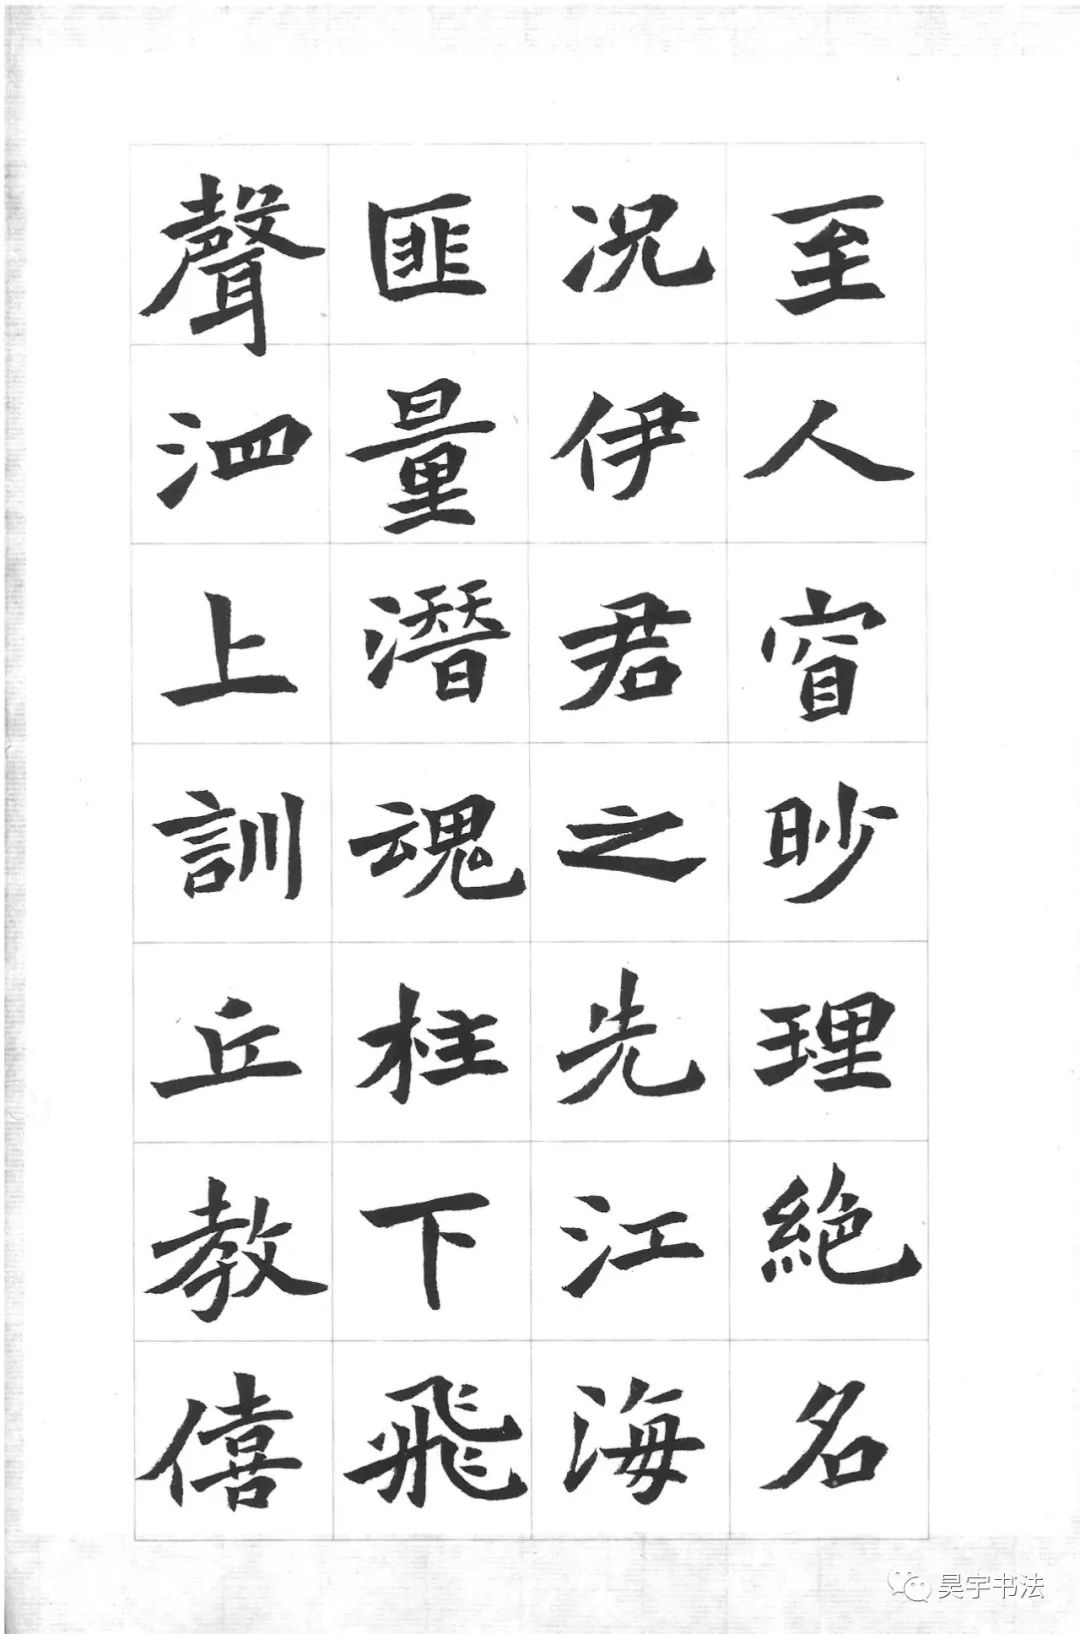 至人窅眇理絶名
况伊君之先江海
匪量潛魂柱下飛
聲泗上訓丘教僖
昊宇书法